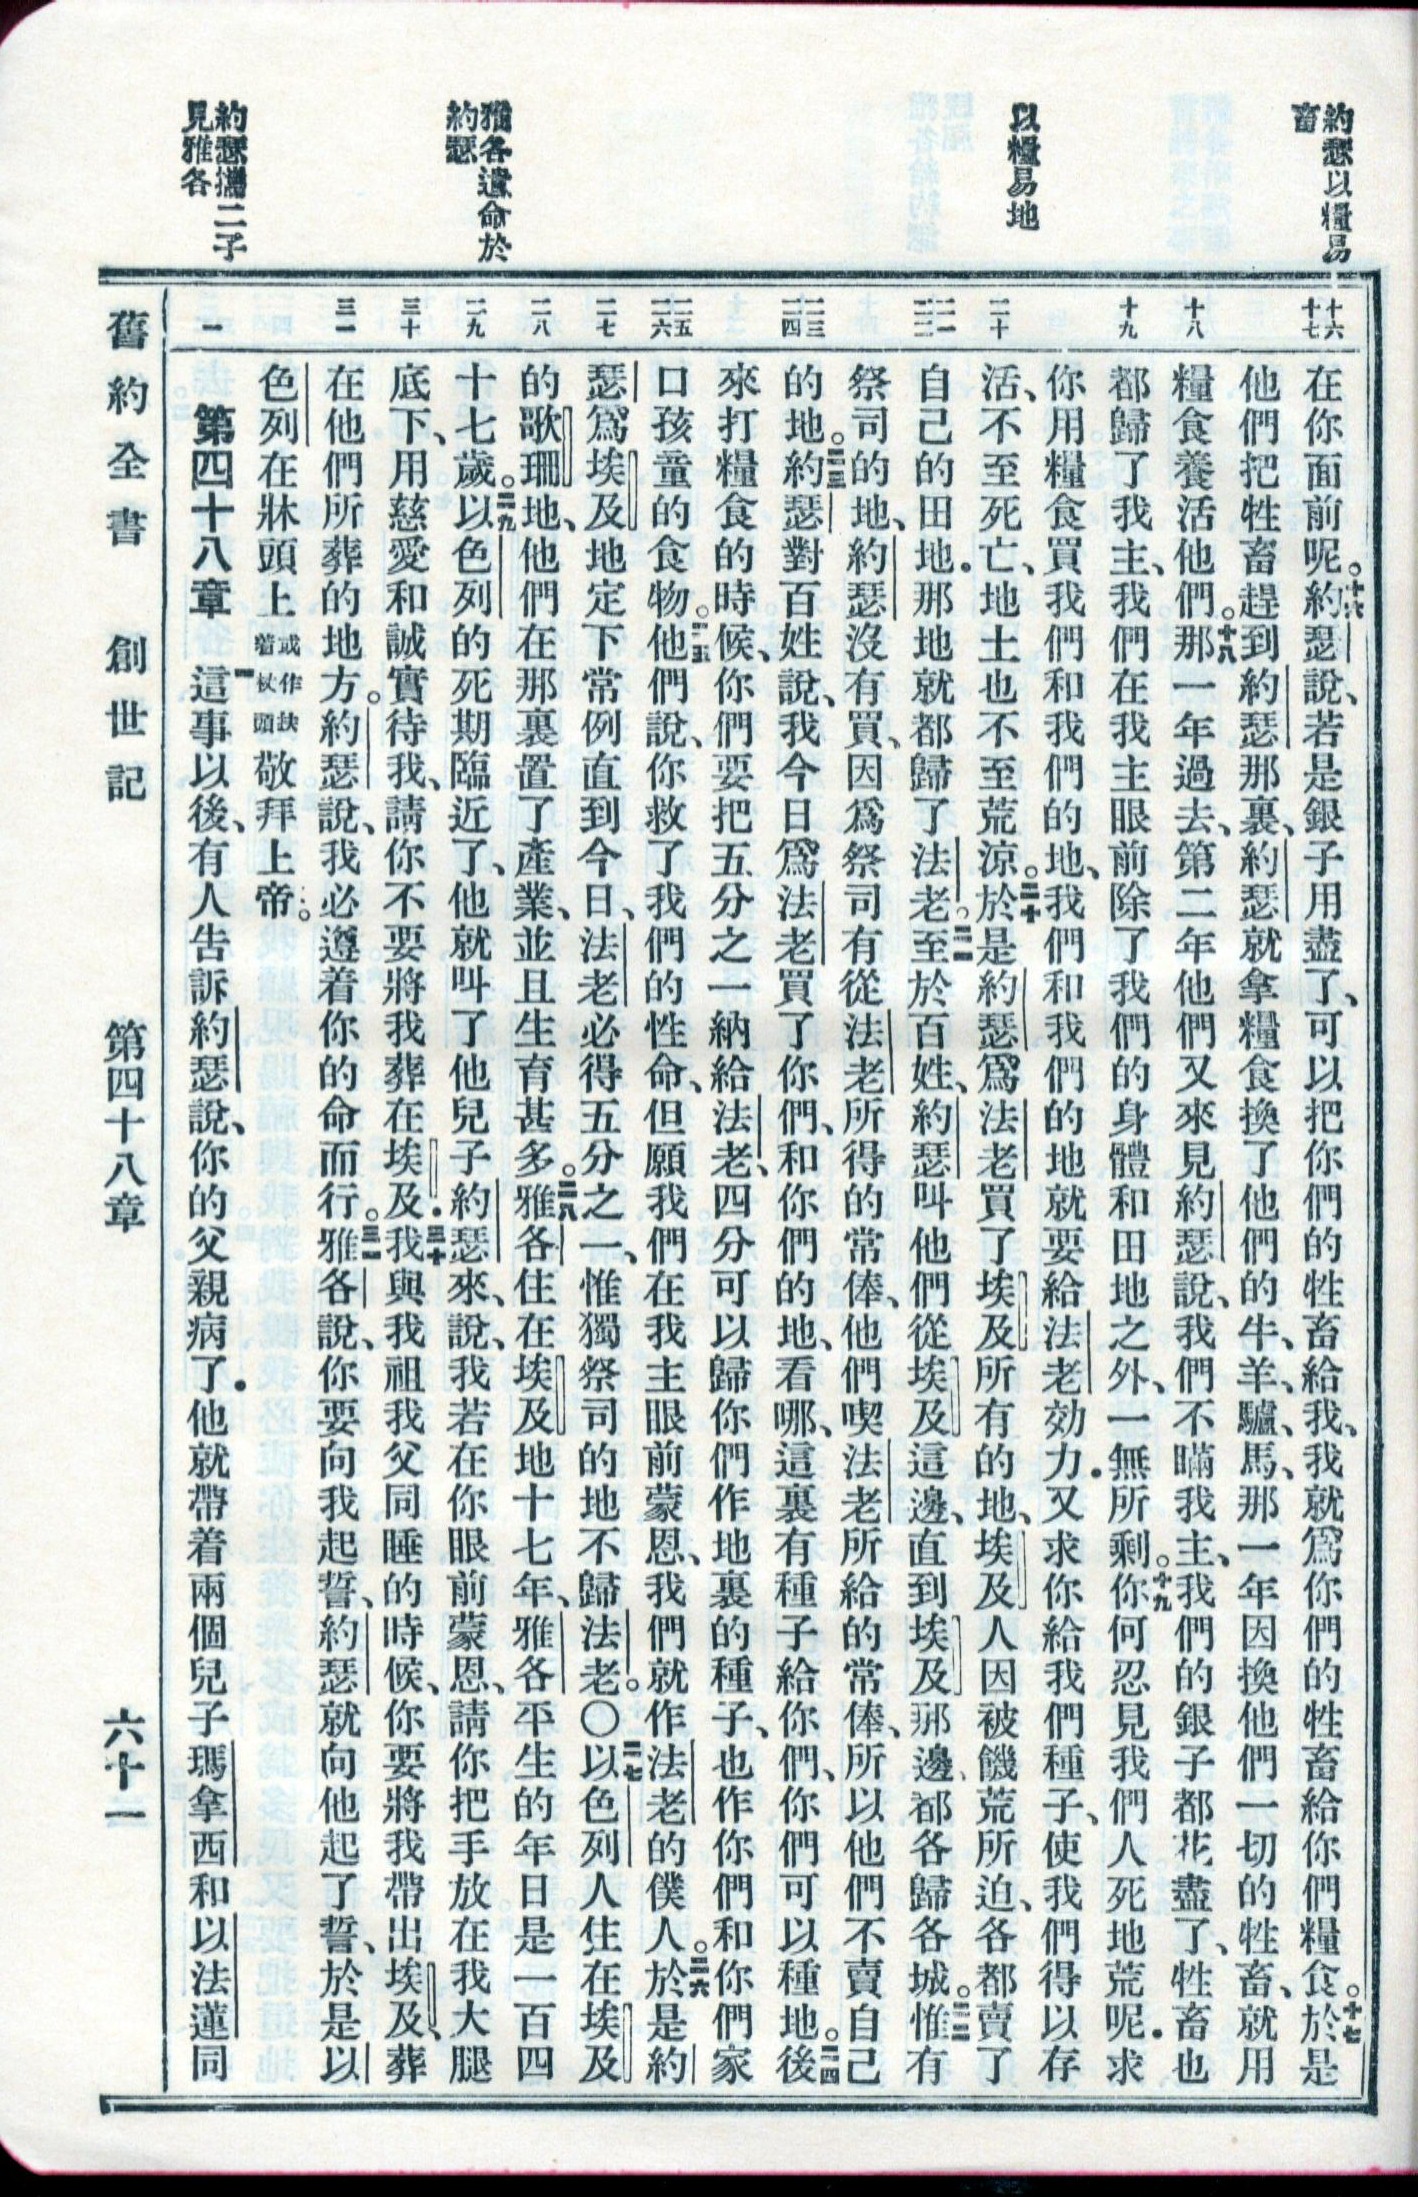 約瑟以糧易
畜
以糧易地
雅各遺命於
約瑟
約瑟攜二子
見雅各
十六
十七
十八
十九
二十
二一
二二
二三
二四
二五
二六
二七
二八
二九
三十
三一
一
在你面前呢。十六約瑟說、若是銀子用盡了、可以把你們的牲畜給我、我就爲你們的牲畜給你們糧食。十七於是
他們把牲畜趕到約瑟那裏、約瑟就拿糧食換了他們的牛、羊、驢、馬、那一年因換他們一切的牲畜、就用
糧食養活他們。十八那一年過去、第二年他們又來見約瑟說、我們不瞞我主、我們的銀子都花盡了、牲畜也
都歸了我主、我們在我主眼前除了我們的身體和田地之外、一無所剩。十九你何忍見我們人死地荒呢．求
你用糧食買我們和我們的地、我們和我們的地就要給法老効力．又求你給我們種子、使我們得以存
活、不至死亡、地土也不至荒涼。二十於是約瑟爲法老買了埃及所有的地、埃及人因被饑荒所迫、各都賣了
自己的田地．那地就都歸了法老。二一至於百姓、約瑟叫他們從埃及這邊、直到埃及那邊、都各歸各城。二二惟有
祭司的地、約瑟沒有買、因爲祭司有從法老所得的常俸、他們喫法老所給的常俸、所以他們不賣自己
的地。二三約瑟對百姓說、我今日爲法老買了你們、和你們的地、看哪、這裏有種子給你們、你們可以種地。二四後
來打糧食的時候、你們要把五分之一納給法老、四分可以歸你們作地裏的種子、也作你們和你們家
口孩童的食物。二五他們說、你救了我們的性命、但願我們在我主眼前蒙恩、我們就作法老的僕人。二六於是約
瑟爲埃及地定下常例直到今日、法老必得五分之一、惟獨祭司的地不歸法老。〇二七以色列人住在埃及
的歌珊地、他們在那裏置了產業、並且生育甚多。二八雅各住在埃及地十七年、雅各平生的年日是一百四
十七歲。二九以色列的死期臨近了、他就叫了他兒子約瑟來、說、我若在你眼前蒙恩、請你把手放在我大腿
底下、用慈愛和誠實待我、請你不要將我葬在埃及．三十我與我祖我父同睡的時候、你要將我帶出埃及、葬
在他們所葬的地方。約瑟說、我必遵着你的命而行。三一雅各說、你要向我起誓、約瑟就向他起了誓、於是以
色列在牀頭上或作扶着杖頭敬拜上帝。
第四十八章 一這事以後、有人告訴約瑟說、你的父親病了．他就帶着兩個兒子瑪拿西和以法蓮同
舊約全書 創世記 第四十八章 六十一